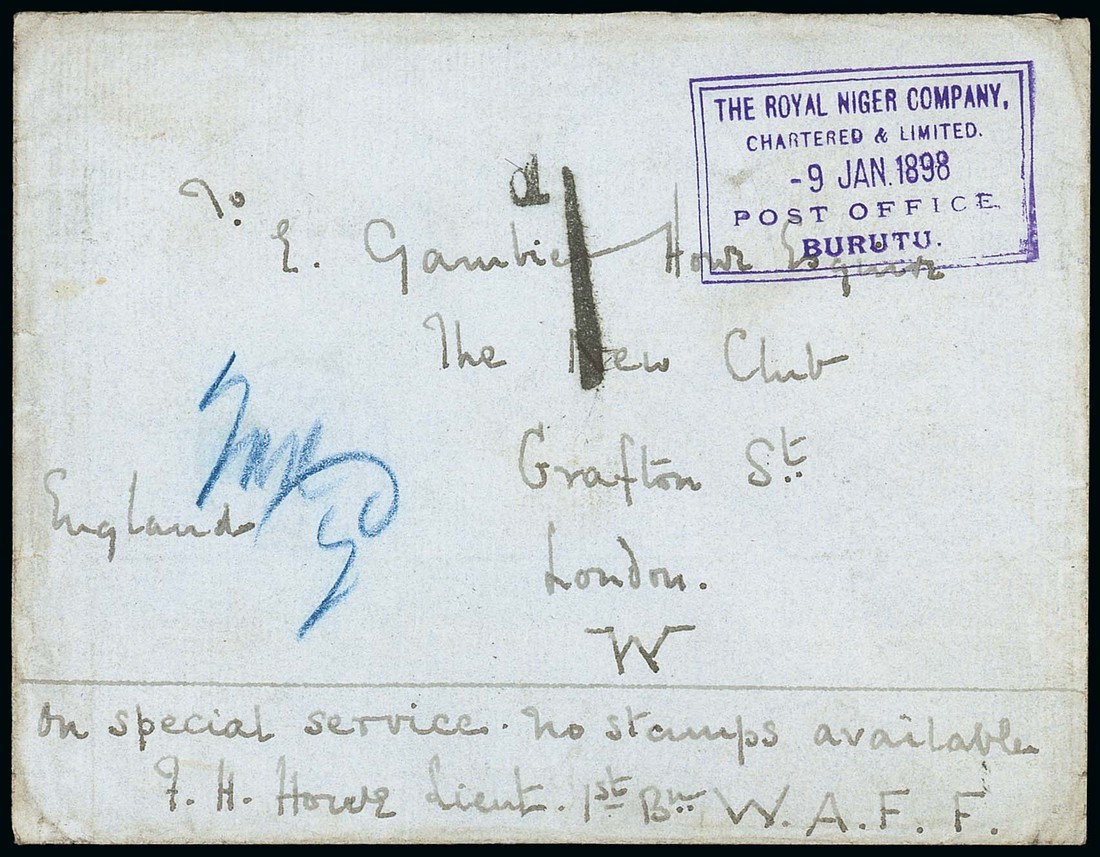 THE ROYAL NIGER COMPANY,
CHARTERED & LIMITED.
-9 JAN. 1898
POST OFFICE
BURUTU.
To
E. Gambier Howe Esquire
The New Club
Grafton St.
London.
W
England
d
1
on special service. No stamps available
F. H. Howe Lieut. 1st Bn W. A. F. F.